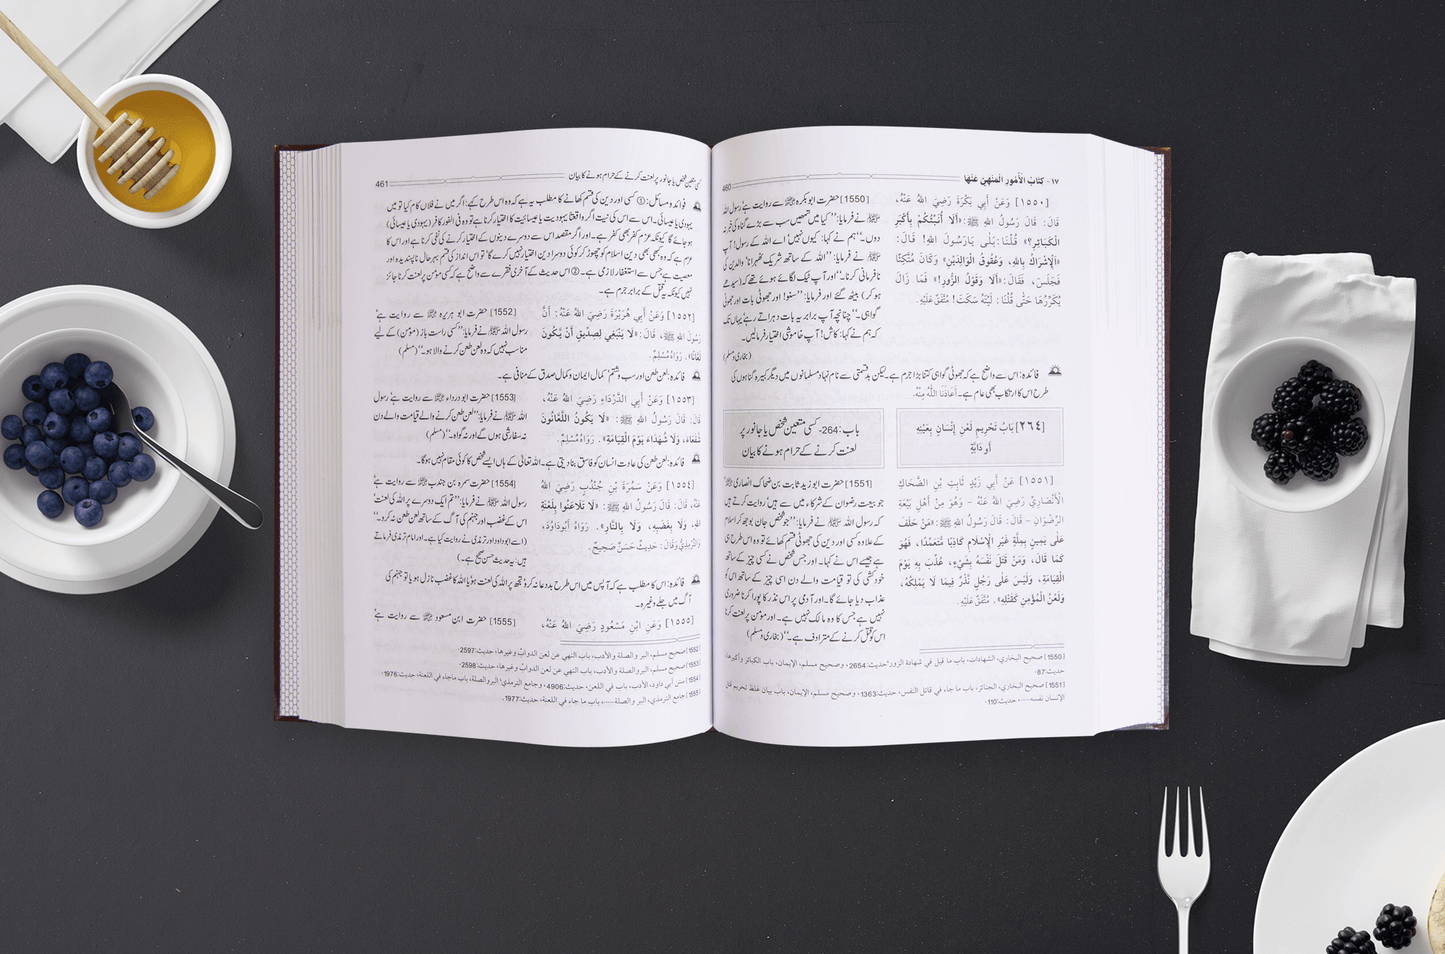 ١٧ - كِتَابُ الْأُمُورِ الْمَنْهِيِّ عَنْهَا
460
[١٥٥٠] وَعَنْ أَبِي بَكْرَةَ رَضِيَ اللهُ عَنْهُ،
قَالَ: قَالَ رَسُولُ اللهِ ﷺ: «أَلَا أُنَبِّئُكُمْ بِأَكْبَرِ
الْكَبَائِرِ؟» قُلْنَا: بَلَى يَارَسُولَ اللهِ! قَالَ:
«الْإِشْرَاكُ بِاللهِ، وَعُقُوقُ الْوَالِدَيْنِ» وَكَانَ مُتَّكِئًا
فَجَلَسَ، فَقَالَ: «أَلَا وَقَوْلُ الزُّورِ!» فَمَا زَالَ
يُكَرِّرُهَا حَتَّى قُلْنَا: لَيْتَهُ سَكَتَ! مُتَّفَقٌ عَلَيْهِ.
[1550] حضرت ابو بکرہ ﷜ سے روایت ہے رسول اللہ
ﷺ نے فرمایا: ’’کیا میں تمھیں سب سے بڑے گناہ کی خبر نہ
دوں۔‘‘ ہم نے کہا: کیوں نہیں' اے اللہ کے رسول! آپ
ﷺ نے فرمایا: ’’اللہ کے ساتھ شریک ٹھہرانا' والدین کی
نافرمانی کرنا۔‘‘ اور آپ ٹیک لگائے ہوئے تھے کہ (سیدھے
ہو کر) بیٹھ گئے اور فرمایا: ’’سنو! اور جھوٹی بات اور جھوٹی
گواہی۔‘‘ چنانچہ آپ برابر یہ بات دہراتے رہے' یہاں تک
کہ ہم نے کہا: کاش! آپ خاموشی اختیار فرمائیں۔
(بخاری و مسلم)
فائدہ: اس سے واضح ہے کہ جھوٹی گواہی کتنا بڑا جرم ہے۔ لیکن بدقسمتی سے نام نہاد مسلمانوں میں دیگر کبیرہ گناہوں کی
طرح اس کا ارتکاب بھی عام ہے۔ أَعَاذَنَا اللهُ مِنْهُ.
[٢٦٤] بَابُ تَحْرِيمِ لَعْنِ إِنْسَانٍ بِعَيْنِهِ
أَوْ دَابَّةٍ
باب: 264- کسی متعین شخص یا جانور پر
لعنت کرنے کے حرام ہونے کا بیان
[١٥٥١] عَنْ أَبِي زَيْدٍ ثَابِتِ بْنِ الضَّحَّاكِ
الْأَنْصَارِيِّ رَضِيَ اللهُ عَنْهُ - وَهُوَ مِنْ أَهْلِ بَيْعَةِ
الرِّضْوَانِ - قَالَ: قَالَ رَسُولُ اللهِ ﷺ: «مَنْ حَلَفَ
عَلَى يَمِينٍ بِمِلَّةٍ غَيْرِ الْإِسْلَامِ كَاذِبًا مُتَعَمِّدًا، فَهُوَ
كَمَا قَالَ، وَمَنْ قَتَلَ نَفْسَهُ بِشَيْءٍ، عُذِّبَ بِهِ يَوْمَ
الْقِيَامَةِ، وَلَيْسَ عَلَى رَجُلٍ نَذْرٌ فِيمَا لَا يَمْلِكُهُ،
وَلَعْنُ الْمُؤْمِنِ كَقَتْلِهِ». مُتَّفَقٌ عَلَيْهِ.
[1551] حضرت ابو زید ثابت بن ضحاک انصاری ﷜
جو بیعت رضوان کے شرکاء میں سے ہیں' روایت کرتے ہیں
کہ رسول اللہ ﷺ نے فرمایا: ’’جو شخص جان بوجھ کر اسلام
کے علاوہ کسی اور دین کی جھوٹی قسم کھائے تو وہ اس طرح ہی
ہے جیسے اس نے کہا۔ اور جس شخص نے کسی چیز کے ساتھ
خودکشی کی تو قیامت والے دن اسی چیز کے ساتھ اس کو
عذاب دیا جائے گا۔ اور آدمی پر اس نذر کا پورا کرنا ضروری
نہیں ہے جس کا وہ مالک نہیں ہے۔ اور مومن پر لعنت کرنا
اس کو قتل کرنے کے مترادف ہے۔‘‘ (بخاری و مسلم)
[1550] صحيح البخاري، الشهادات، باب ما قيل في شهادة الزور' حديث:2654، وصحيح مسلم، الإيمان، باب الكبائر وأكبرها،
حديث:87.
[1551] صحيح البخاري، الجنائز، باب ما جاء في قاتل النفس، حديث:1363، وصحيح مسلم، الإيمان، باب بيان غلظ تحريم قتل
الإنسان نفسه....، حديث:110.
کسی متعین شخص یا جانور پر لعنت کرنے کے حرام ہونے کا بیان
461
فوائد و مسائل: ① کسی اور دین کی قسم کھانے کا مطلب یہ ہے کہ وہ اس طرح کہے: اگر میں نے فلاں کام کیا تو میں
یہودی یا عیسائی۔ اس سے اس کی نیت اگر واقعتاً یہودیت یا عیسائیت کا اختیار کرنا ہے تو وہ فی الفور کافر (یہودی یا عیسائی)
ہو جائے گا کیونکہ عزم کفر بھی کفر ہے۔ اور اگر مقصد اس سے دوسرے دینوں کے اختیار کرنے کی نفی کرنا ہے اور اس کا
عزم ہے کہ وہ کبھی بھی دین اسلام کو چھوڑ کر کوئی دوسرا دین اختیار نہیں کرے گا' تو اس انداز کی قسم بہرحال ناپسندیدہ اور
معصیت ہے جس سے استغفار لازمی ہے۔ ② اس حدیث کے آخری فقرے سے واضح ہے کہ کسی مومن پر لعنت کرنا جائز
نہیں کیونکہ یہ قتل کے برابر جرم ہے۔
[١٥٥٢] وَعَنْ أَبِي هُرَيْرَةَ رَضِيَ اللهُ عَنْهُ: أَنَّ
رَسُولَ اللهِ ﷺ، قَالَ: «لَا يَنْبَغِي لِصِدِّيقٍ أَنْ يَّكُونَ
لَعَّانًا». رَوَاهُ مُسْلِمٌ.
[1552] حضرت ابو ہریرہ ﷜ سے روایت ہے'
رسول اللہ ﷺ نے فرمایا: ’’کسی راست باز (مومن) کے لیے
مناسب نہیں کہ وہ لعن طعن کرنے والا ہو۔‘‘ (مسلم)
فائدہ: لعن طعن اور سب و شتم' کمال ایمان و کمال صدق کے منافی ہے۔
[١٥٥٣] وَعَنْ أَبِي الدَّرْدَاءِ رَضِيَ اللهُ عَنْهُ،
قَالَ: قَالَ رَسُولُ اللهِ ﷺ: «لَا يَكُونُ اللَّعَّانُونَ
شُفَعَاءَ، وَلَا شُهَدَاءَ يَوْمَ الْقِيَامَةِ». رَوَاهُ مُسْلِمٌ.
[1553] حضرت ابو درداء ﷜ سے روایت ہے' رسول
اللہ ﷺ نے فرمایا: ’’لعن طعن کرنے والے قیامت والے دن
نہ سفارشی ہوں گے اور نہ گواہ۔‘‘ (مسلم)
فائدہ: لعن طعن کی عادت انسان کو فاسق بنا دیتی ہے۔ اللہ تعالیٰ کے ہاں ایسے شخص کا کوئی مقام نہیں ہوگا۔
[١٥٥٤] وَعَنْ سَمُرَةَ بْنِ جُنْدُبٍ رَضِيَ اللهُ
عَنْهُ، قَالَ: قَالَ رَسُولُ اللهِ ﷺ: «لَا تَلَاعَنُوا بِلَعْنَةِ
اللهِ، وَلَا بِغَضَبِهِ، وَلَا بِالنَّارِ». رَوَاهُ أَبُودَاوُدَ،
وَالتِّرْمِذِيُّ وَقَالَ: حَدِيثٌ حَسَنٌ صَحِيحٌ.
[1554] حضرت سمرہ بن جندب ﷜ سے روایت ہے'
رسول اللہ ﷺ نے فرمایا: ’’تم ایک دوسرے پر اللہ کی لعنت'
اس کے غضب اور جہنم کی آگ کے ساتھ لعن طعن نہ کرو۔‘‘
(اسے ابوداود اور ترمذی نے روایت کیا ہے۔ اور امام ترمذی فرماتے
ہیں: یہ حدیث حسن صحیح ہے۔)
فائدہ: اس کا مطلب ہے کہ آپس میں اس طرح بددعا نہ کرو' تجھ پر اللہ کی لعنت ہو یا اللہ کا غضب نازل ہو یا تو جہنم کی
آگ میں جلے وغیرہ۔
[١٥٥٥] وَعَنِ ابْنِ مَسْعُودٍ رَضِيَ اللهُ عَنْهُ،
[1555] حضرت ابن مسعود ﷜ سے روایت ہے'
[1552] صحيح مسلم، البر والصلة والأدب، باب النهي عن لعن الدواب وغيرها، حديث:2597.
[1553] صحيح مسلم، البر والصلة والأدب، باب النهي عن لعن الدواب وغيرها، حديث:2598.
[1554] سنن أبي داود، الأدب، باب في اللعن، حديث:4906، وجامع الترمذي، البر والصلة، باب ماجاء في اللعنة، حديث:1976.
[1555] جامع الترمذي، البر والصلة....، باب ما جاء في اللعنة، حديث:1977.